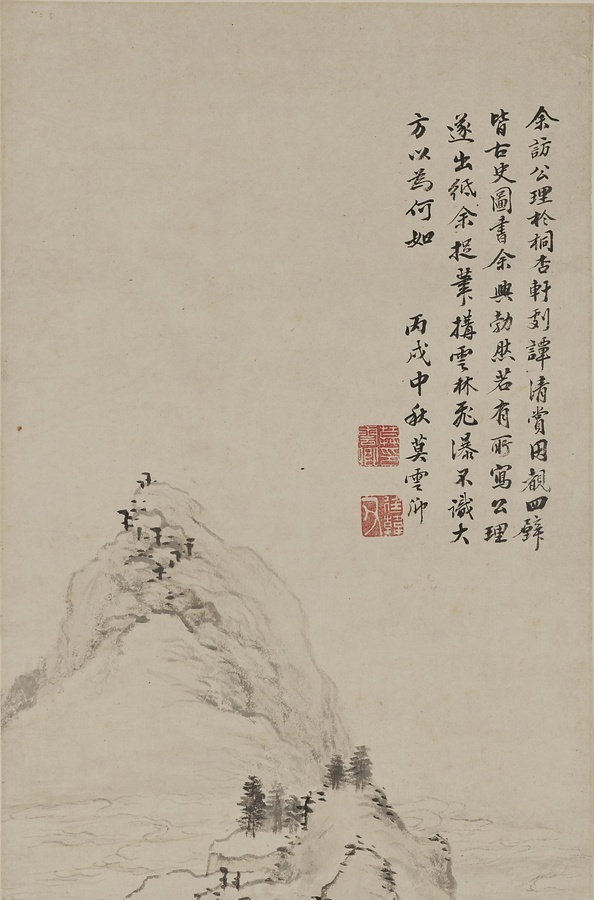 余訪公理於桐杏軒劇譚清賞因觀四壁
皆古史圖書余興勃然若有所寫公理
遂出紙余捉筆搆雲林飛瀑不識大
方以為何如
丙戌中秋莫雲卿